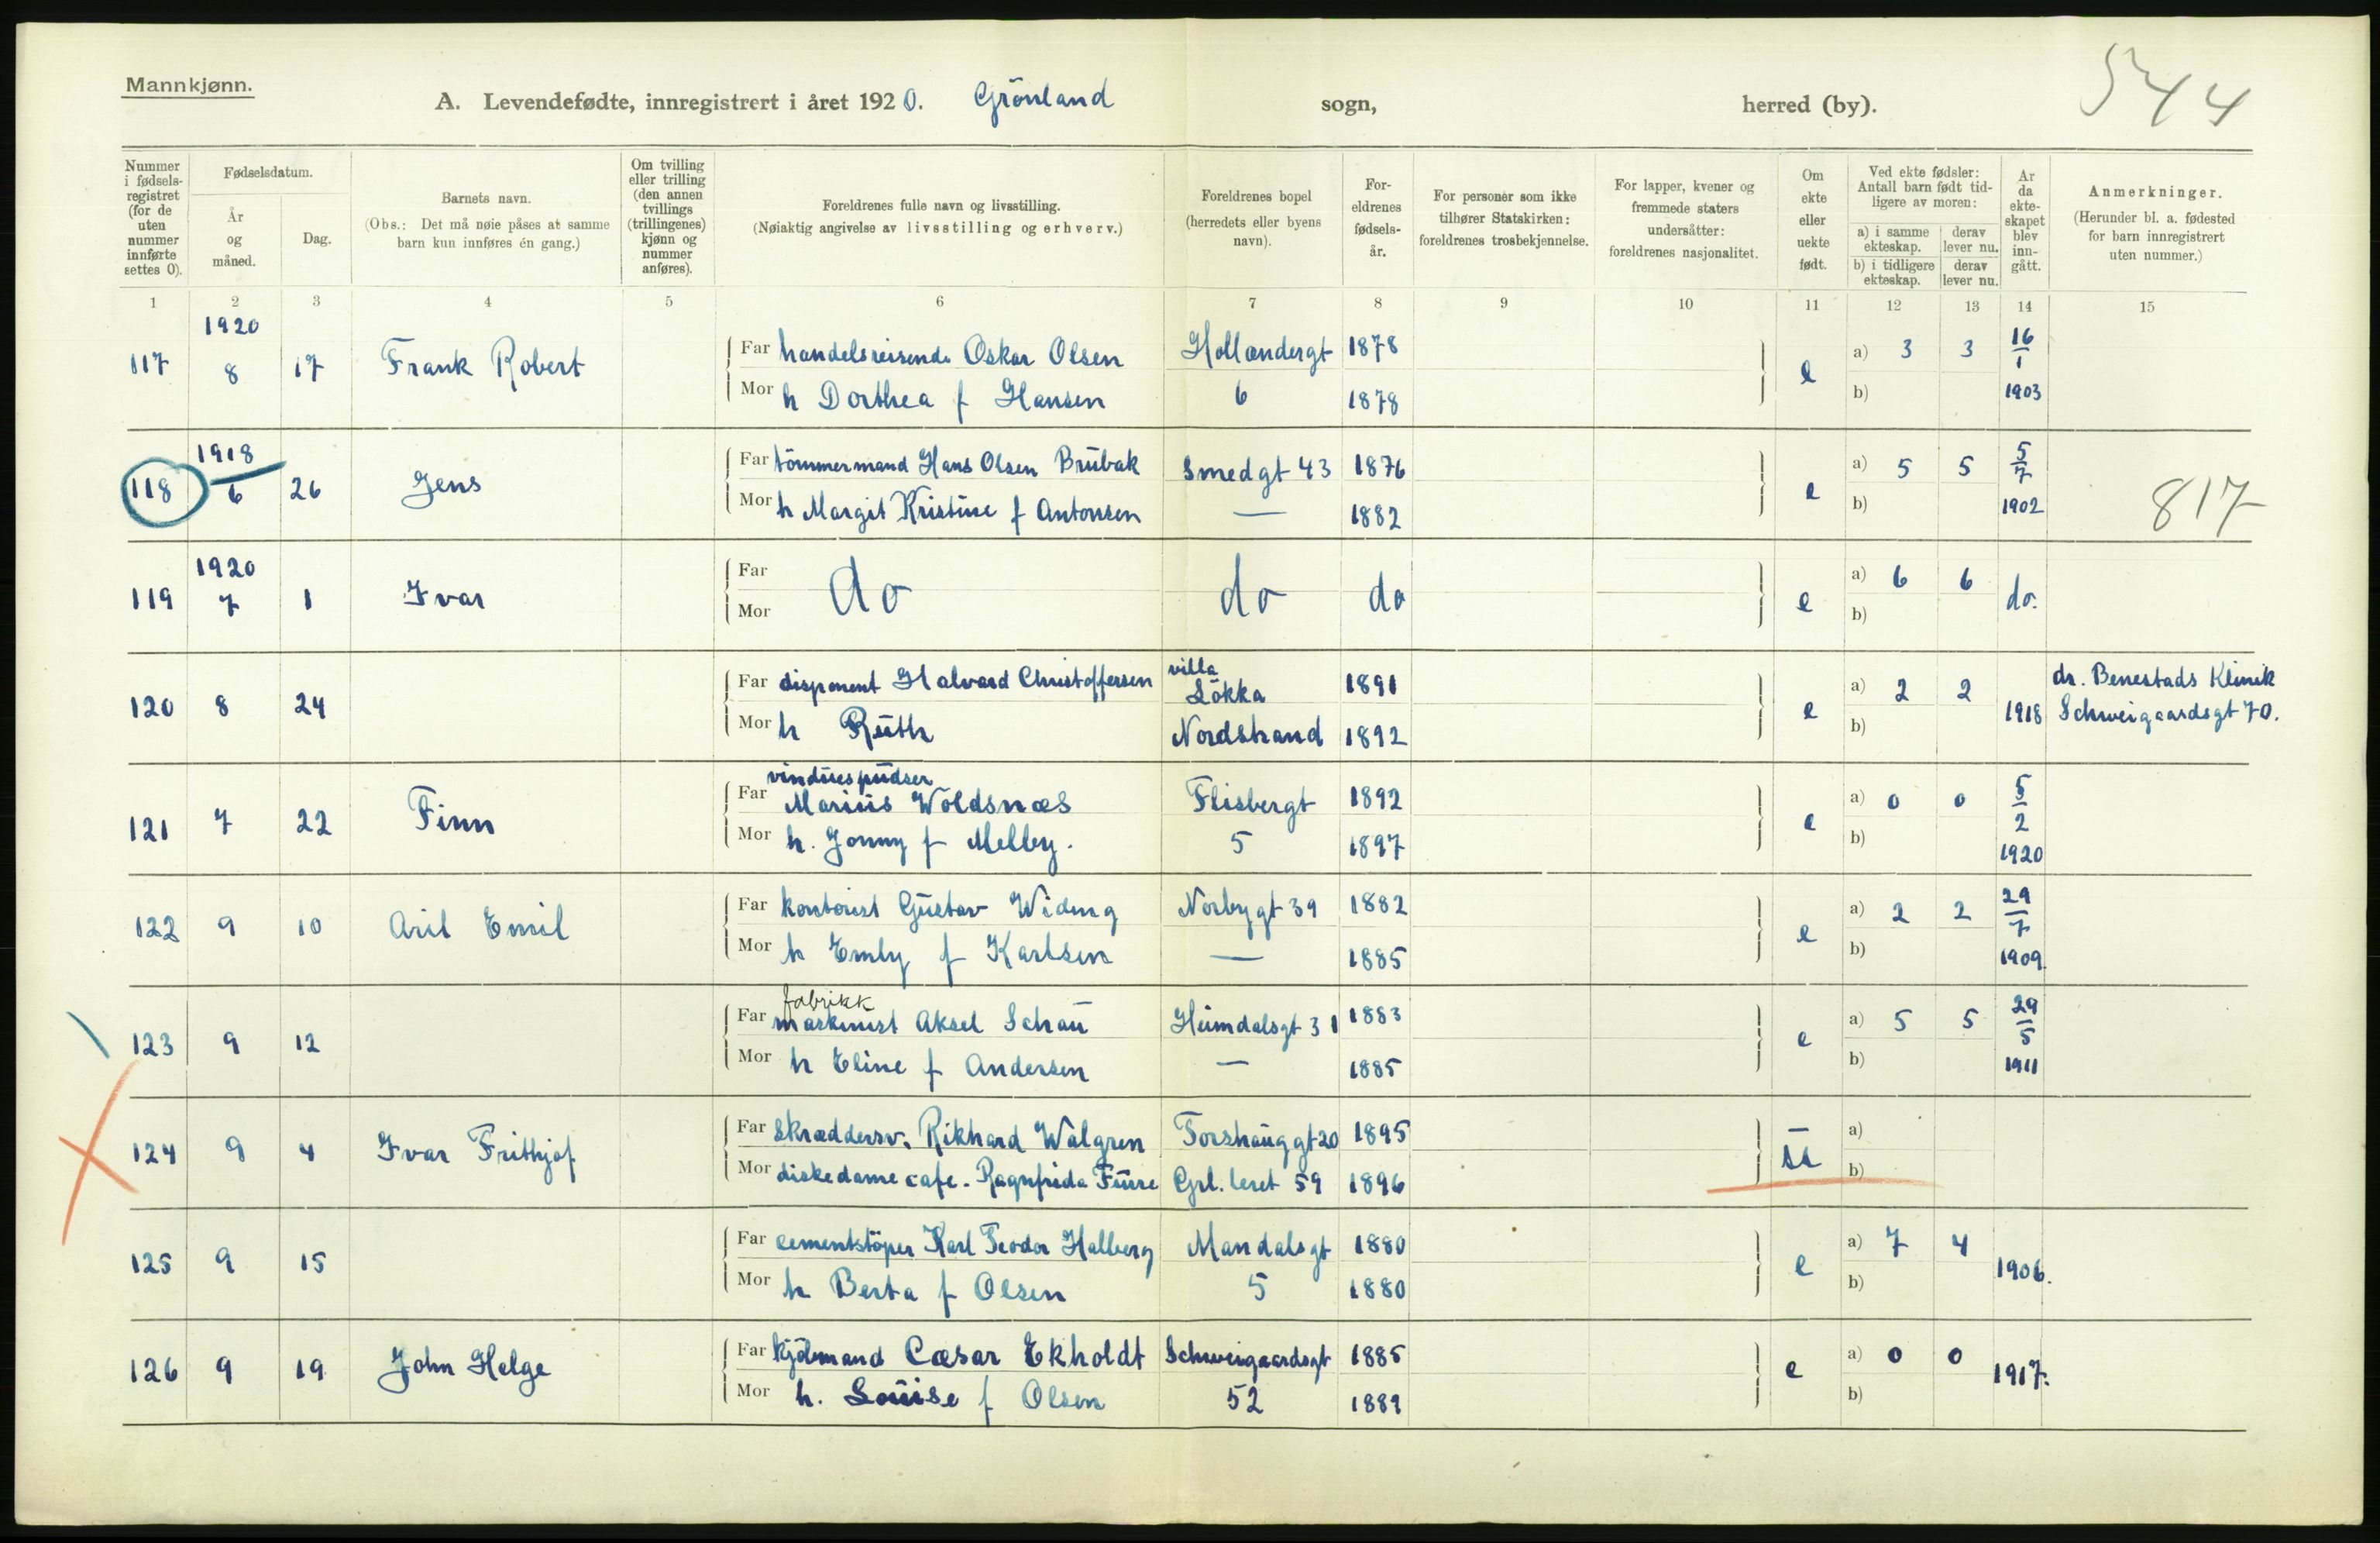 Mannkjønn.
544
A. Levendefødte, innregistrert i året 1920. Grönland sogn, herred (by).
Nummer i fødsels-registret (for de uten nummer innførte settes 0).
Fødselsdatum.
År og måned.
Dag.
Barnets navn.
(Obs.: Det må nøie påses at samme barn kun innføres én gang.)
Om tvilling eller trilling (den annen tvillings (trillingenes) kjønn og nummer anføres).
Foreldrenes fulle navn og livsstilling.
(Nøiaktig angivelse av livsstilling og erhverv.)
Foreldrenes bopel (herredets eller byens navn).
For-eldrenes fødsels-år.
For personer som ikke tilhører Statskirken: foreldrenes trosbekjennelse.
For lapper, kvener og fremmede staters undersåtter: foreldrenes nasjonalitet.
Om ekte eller uekte født.
Ved ekte fødsler: Antall barn født tid-ligere av moren:
a) i samme ekteskap. derav lever nu.
b) i tidligere ekteskap. derav lever nu.
Ar da ekte-skapet blev inn-gått.
Anmerkninger.
(Herunder bl. a. fødested for barn innregistrert uten nummer.)
1 2 3 4 5 6 7 8 9 10 11 12 13 14 15
1920
117 8 17 Frank Robert Far handelsreisende Oskar Olsen Hollændergt 1878 e a) 3 3 16/1
Mor h Dorthea f Hansen 6 1878 b) 1903
1918
118 6 26 Jens Far tömmermand Hans Olsen Brubak Smedgt 43 1876 e a) 5 5 5/7
Mor h Margit Kristine f Antonsen — 1882 b) 1902 817
1920
119 7 1 Ivar Far do do do e a) 6 6 do.
Mor b)
120 8 24 Far disponent Halvard Christoffersen villa Lökka 1891 e a) 2 2 1918 dr. Benestads Klinik
Mor h Ruth Nordstrand 1892 b) Schweigaardsgt 70.
vinduespudser
121 7 22 Finn Far Marius Woldsnæs Flisbergt 1892 e a) 0 0 5/2
Mor h. Jonny f Melby. 5 1897 b) 1920
122 9 10 Aril Emil Far kontorist Gustav Widing Norbygt 39 1882 e a) 2 2 29/7
Mor h Emly f Karlsen — 1885 b) 1909.
fabrikk
123 9 12 Far maskinist Aksel Schau Heimdalsgt 31 1883 e a) 5 5 29/5
Mor h Eline f Andersen — 1885 b) 1911
124 9 4 Ivar Frithjof Far Skræddersv. Rikhard Walgren Torshauggt 20 1895 — a)
Mor diskedame cafe. Ragnfrida Furre Grl. leret 59 1896 b)
125 9 15 Far cementstöper Karl Teodor Hallberg Mandalsgt 1880 e a) 7 4 1906.
Mor h Berta f Olsen 5 1880 b)
126 9 19 John Helge Far kjölmand Cæsar Ekholdt Schweigaardsgt 1885 e a) 0 0 1917.
Mor h. Louise f Olsen 52 1889 b)